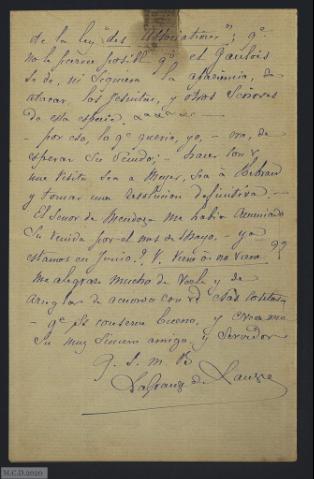 de la ley "des Associations"; qᵉ
no le parece posible qᵉ el Gaulois
se dé, ni siquiera la apariencia, de
atacar, los Jesuitas, y otros Señores
de esta especie.
- por eso, lo qᵉ queria, yo, - era, de
esperar su venida; - hacer con V.
una visita sea a Meyer, sea à
y tomar una resolucion definitiva. -
El Señor de Mendoza me habia anunciado
su venida por el mes de Mayo, - ya
estamos en Junio.? V. Viene ò no viene??
me alegraré mucho de verle y de
arreglar de acuerdo con Vd esas cositas,
- qᵉ se conserve bueno, y crea me
Su muy sincero amigo, y servidor
q. s. m. b.
M.C.D.2020